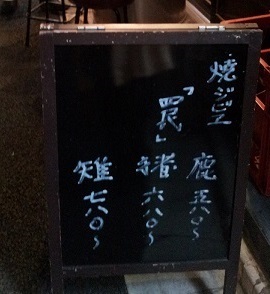 焼ジビエ
「罠」
鹿 五八〇〜
猪 六八〇〜
雉 七八〇〜